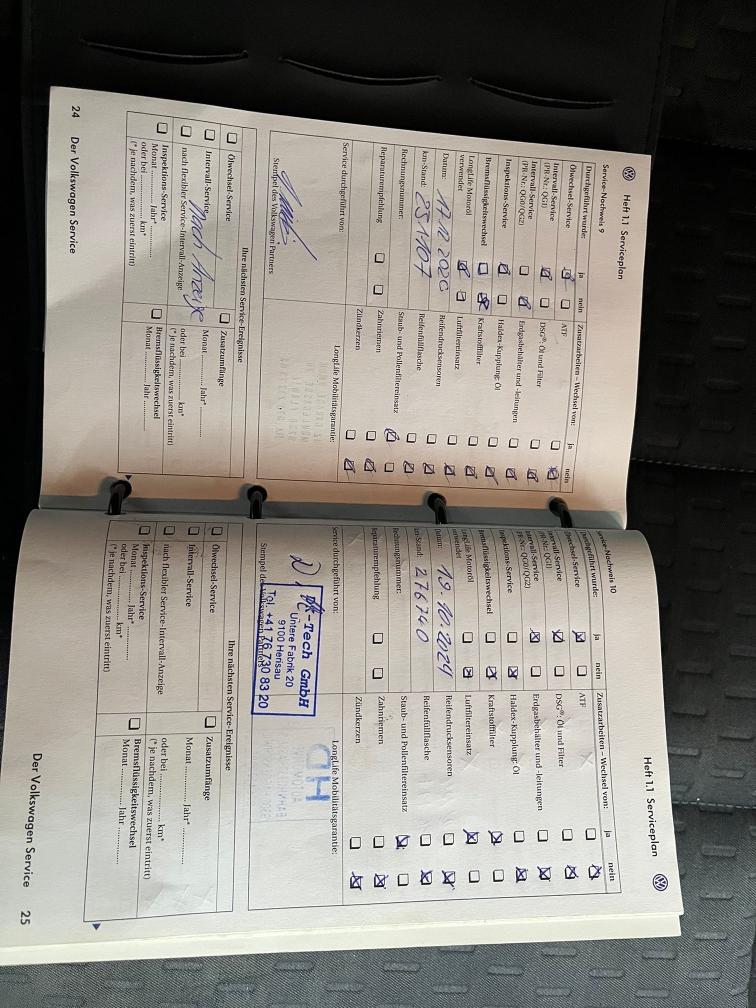 Heft 1.1 Serviceplan
Service-Nachweis 9
Durchgeführt wurde: ja nein
Ölwechsel-Service
Intervall-Service
(PR-Nr.: QG1)
Intervall-Service
(PR-Nr.: QG0/QG2)
Inspektions-Service
Bremsflüssigkeitswechsel
LongLife Motoröl
verwendet
Datum: 17.12.2020
km-Stand: 251107
Rechnungsnummer:
Reparaturempfehlung
Zusatzarbeiten - Wechsel von: ja nein
ATF
DSG®: Öl und Filter
Erdgasbehälter und -leitungen
Haldex-Kupplung: Öl
Kraftstofffilter
Luftfiltereinsatz
Reifendrucksensoren
Reifenfüllflasche
Staub- und Pollenfiltereinsatz
Zahnriemen
Zündkerzen
Service durchgeführt von:
LongLife Mobilitätsgarantie:
Stempel des Volkswagen Partners
Ihre nächsten Service-Ereignisse
Ölwechsel-Service
Intervall-Service
nach flexibler Service-Intervall-Anzeige
nach Anzeige
Inspektions-Service
Monat ............ Jahr* ............
oder bei ............ km*
(* je nachdem, was zuerst eintritt)
Zusatzumfänge
Monat ............ Jahr* ............
oder bei ............ km*
(* je nachdem, was zuerst eintritt)
Bremsflüssigkeitswechsel
Monat ............ Jahr ............
24 Der Volkswagen Service
Heft 1.1 Serviceplan
Service-Nachweis 10
Durchgeführt wurde: ja nein
Ölwechsel-Service
Intervall-Service
(PR-Nr.: QG1)
Intervall-Service
(PR-Nr.: QG0/QG2)
Inspektions-Service
Bremsflüssigkeitswechsel
LongLife Motoröl
verwendet
Datum: 19.10.2024
km-Stand: 276740
Rechnungsnummer:
Reparaturempfehlung
Zusatzarbeiten - Wechsel von: ja nein
ATF
DSG®: Öl und Filter
Erdgasbehälter und -leitungen
Haldex-Kupplung: Öl
Kraftstofffilter
Luftfiltereinsatz
Reifendrucksensoren
Reifenfüllflasche
Staub- und Pollenfiltereinsatz
Zahnriemen
Zündkerzen
Service durchgeführt von:
LongLife Mobilitätsgarantie:
-Tech GmbH
Untere Fabrik 20
9100 Herisau
Tel. +41 76 730 83 20
Stempel des Volkswagen Partners
Ihre nächsten Service-Ereignisse
Ölwechsel-Service
Intervall-Service
nach flexibler Service-Intervall-Anzeige
Inspektions-Service
Monat ............ Jahr* ............
oder bei ............ km*
(* je nachdem, was zuerst eintritt)
Zusatzumfänge
Monat ............ Jahr* ............
oder bei ............ km*
(* je nachdem, was zuerst eintritt)
Bremsflüssigkeitswechsel
Monat ............ Jahr ............
Der Volkswagen Service 25